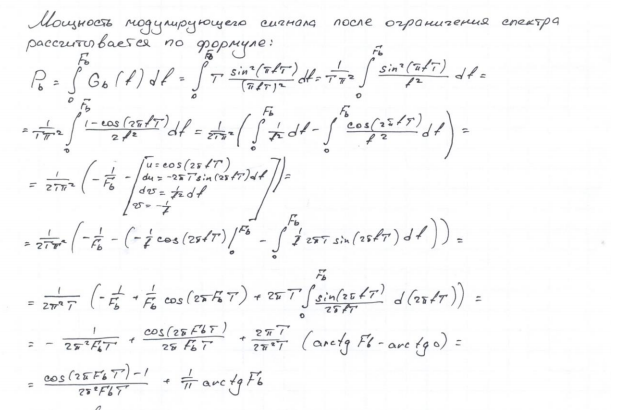 Мощность модулирующего сигнала после ограничения спектра
рассчитывается по формуле:
P_b = ∫_0^{F_b} G_b(f) df = ∫_0^{F_b} T sin²(πfT)/(πfT)² df = 1/(Tπ²) ∫_0^{F_b} sin²(πfT)/f² df =
= 1/(Tπ²) ∫_0^{F_b} (1-cos(2πfT))/(2f²) df = 1/(2Tπ²) (∫_0^{F_b} 1/f² df - ∫_0^{F_b} cos(2πfT)/f² df) =
= 1/(2Tπ²) (-1/F_b - [u = cos(2πfT)
du = -2πT sin(2πfT) df
dv = 1/f² df
v = -1/f]) =
= 1/(2Tπ²) (-1/F_b - (-1/f cos(2πfT)|_0^{F_b} - ∫_0^{F_b} 1/f 2πT sin(2πfT) df)) =
= 1/(2π²T) (-1/F_b + 1/F_b cos(2πF_bT) + 2πT ∫_0^{F_b} sin(2πfT)/(2πfT) d(2πfT)) =
= - 1/(2π²F_bT) + cos(2πF_bT)/(2πF_bT) + 2πT/(2π²T) (arctg F_b - arctg 0) =
= (cos(2πF_bT)-1)/(2π²F_bT) + 1/π arctg F_b